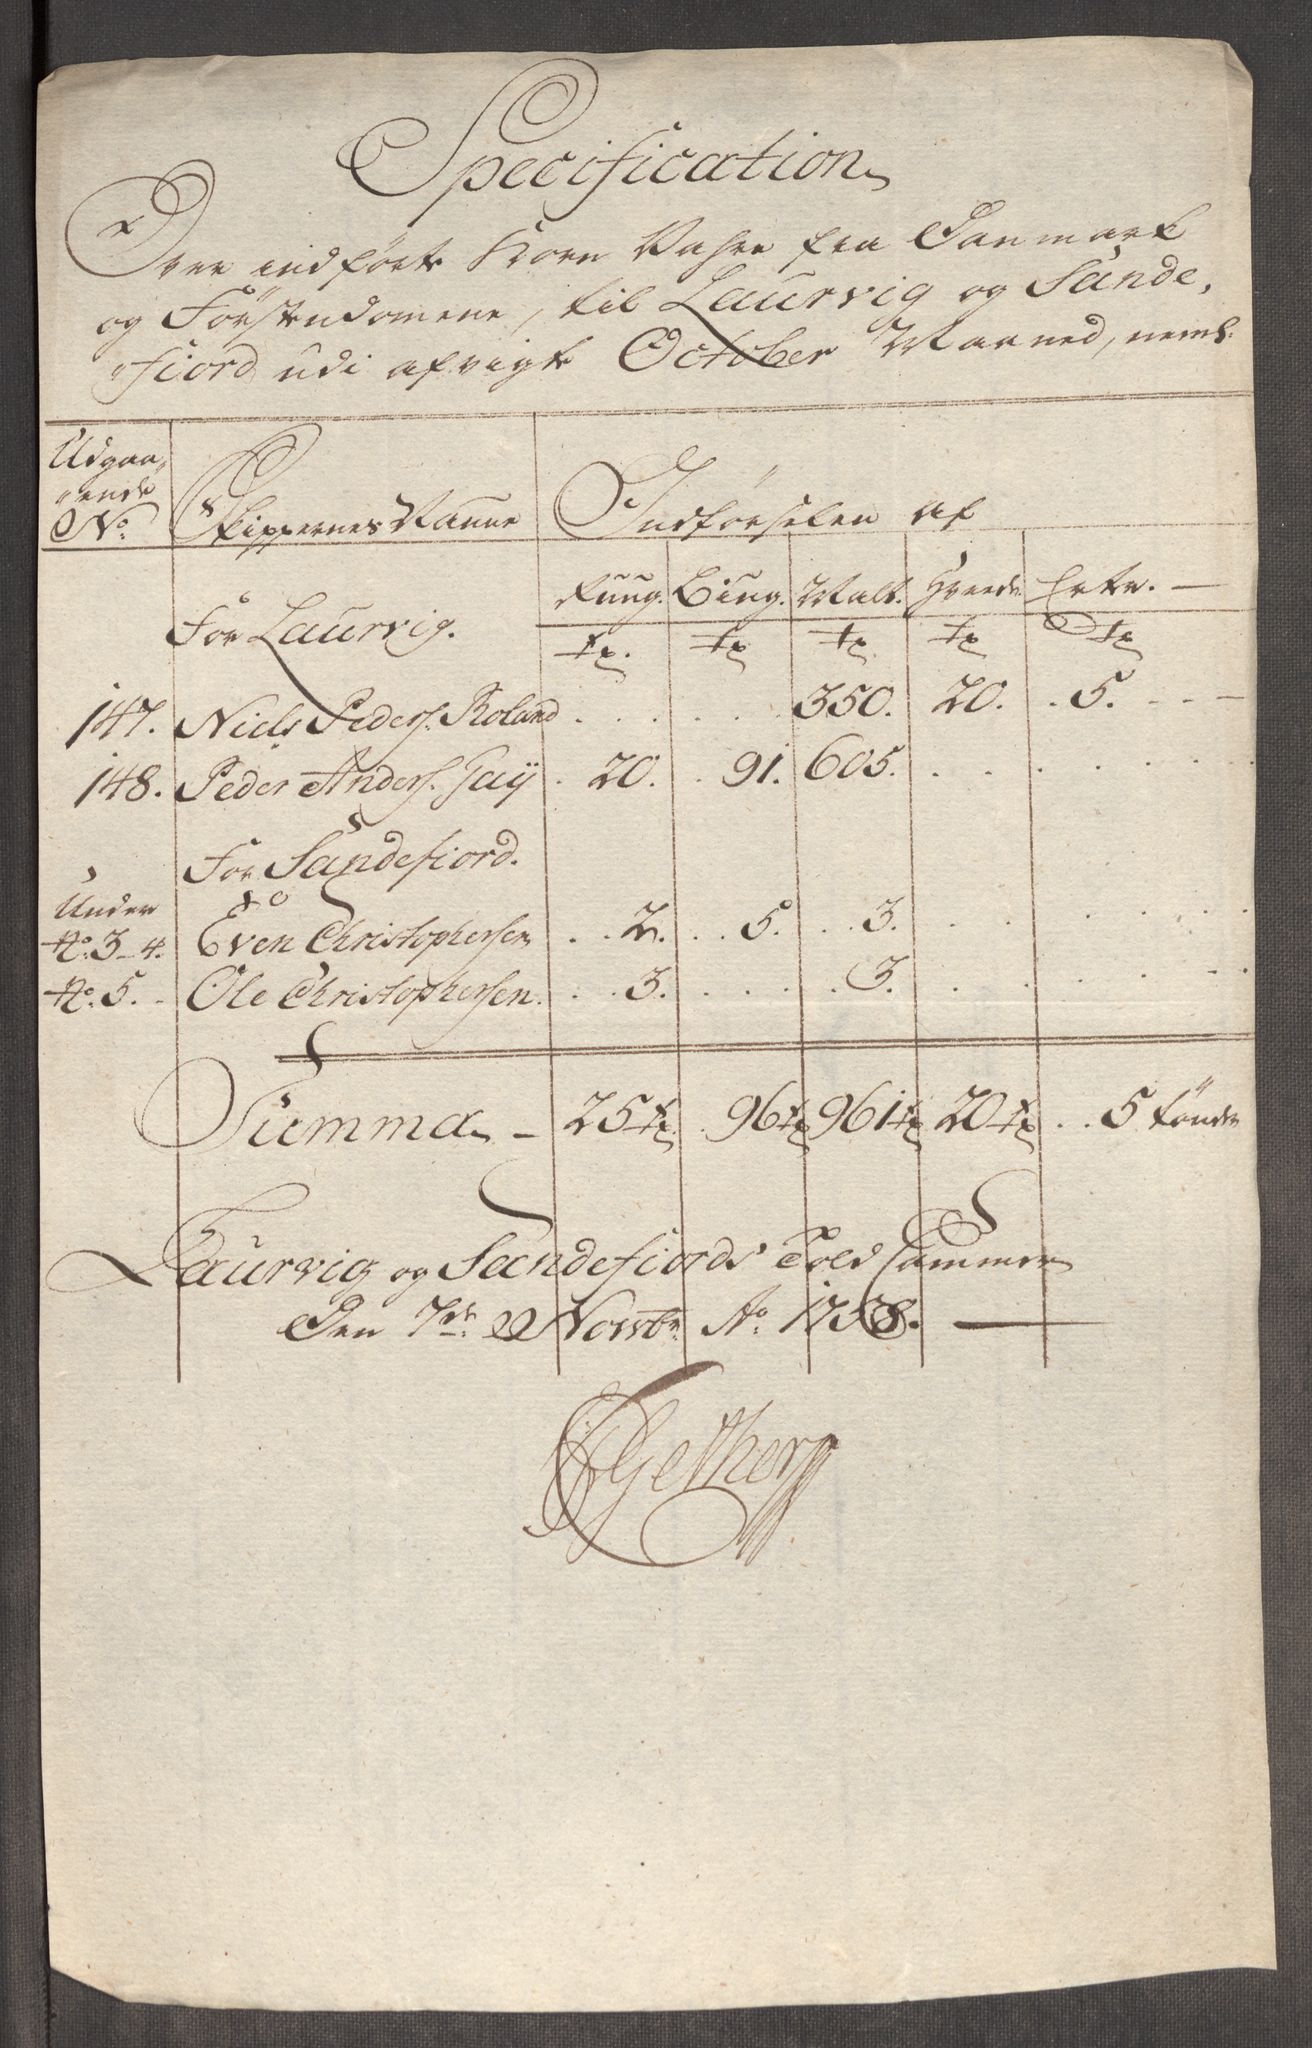 Specification
Over indførte Korn Vahre fra Danmark
og Førstendomene, til Laurvig og Sande,
fiord udi afvigte October Maaned, neml:
Udgaa,
ende
No.
Skippernes Navne Indførselen af
Ruug. Biug. Malt. Hvede. Erter. —
For Laurvig. tr. tr tr tr tr
147. Niels Peders. Roland . . . . . . 350. 20. . 5. - - —
148. Peder Anders. . 20. . 91. 605. . . . . . .
For Sandefiord.
Under
No. 3-4. Even Christophersen . . 2. . . 5. . . 3. . . . . . .
No. 5. - Ole Christophersen. . . 3. . . . . . 3. . . . . . .
Summa - 25 tr. . 96 tr 961 tr 20 tr . . 5 tønder
Laurvig og Sandefiords Told Cammer
Den 7de Novbr. Ao. 1758. —